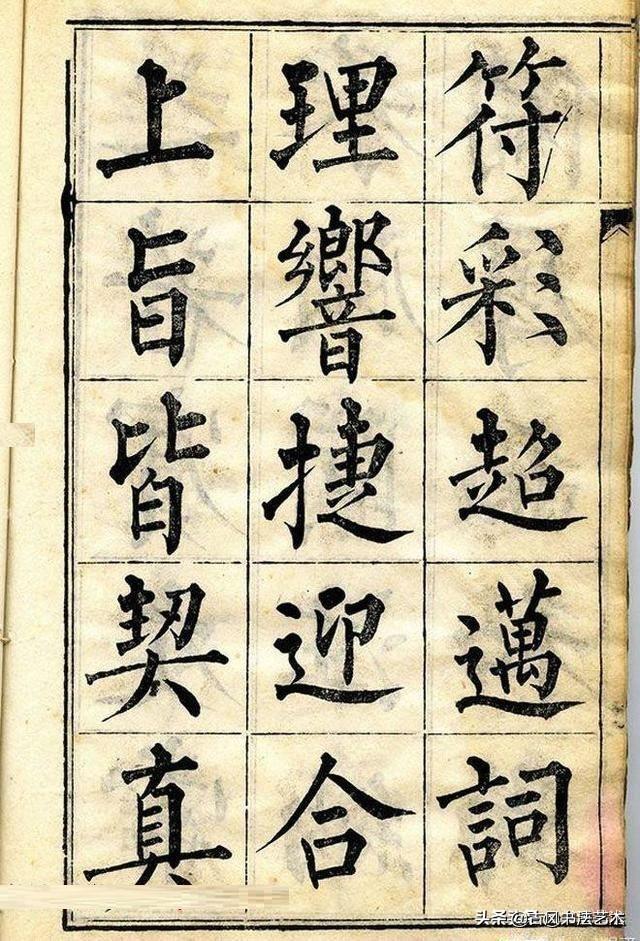 符彩超邁詞
理響捷迎合
上旨皆契真
头条@古风书法艺术